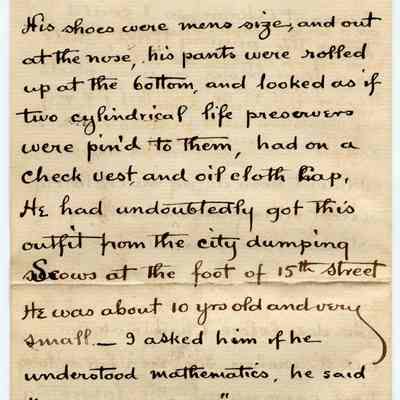 His shoes were mens size, and out
at the nose, his pants were rolled
up at the bottom, and looked as if
two cylindrical life preservers
were pin'd to them, had on a
check vest, and oil cloth cap.
He had undoubtedly got this
outfit from the city dumping
scows at the foot of 15th street
He was about 10 yrs old and very
small. — I asked him if he
understood mathematics, he said